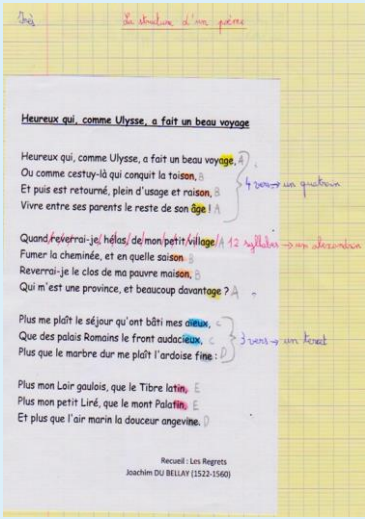 Inès
La structure d'un poème
Heureux qui, comme Ulysse, a fait un beau voyage
Heureux qui, comme Ulysse, a fait un beau voyage, A
Ou comme cestuy-là qui conquit la toison, B
Et puis est retourné, plein d'usage et raison, B
Vivre entre ses parents le reste de son âge ! A
4 vers → un quatrain
Quand/reverrai-je/, hélas/, de/mon/petit/village/ A 12 syllabes → un alexandrin
Fumer la cheminée, et en quelle saison B
Reverrai-je le clos de ma pauvre maison, B
Qui m'est une province, et beaucoup davantage ? A
Plus me plaît le séjour qu'ont bâti mes aïeux, C
Que des palais Romains le front audacieux, C
Plus que le marbre dur me plaît l'ardoise fine : D
3 vers → un tercet
Plus mon Loir gaulois, que le Tibre latin, E
Plus mon petit Liré, que le mont Palatin, E
Et plus que l'air marin la douceur angevine. D
Recueil : Les Regrets
Joachim DU BELLAY (1522-1560)